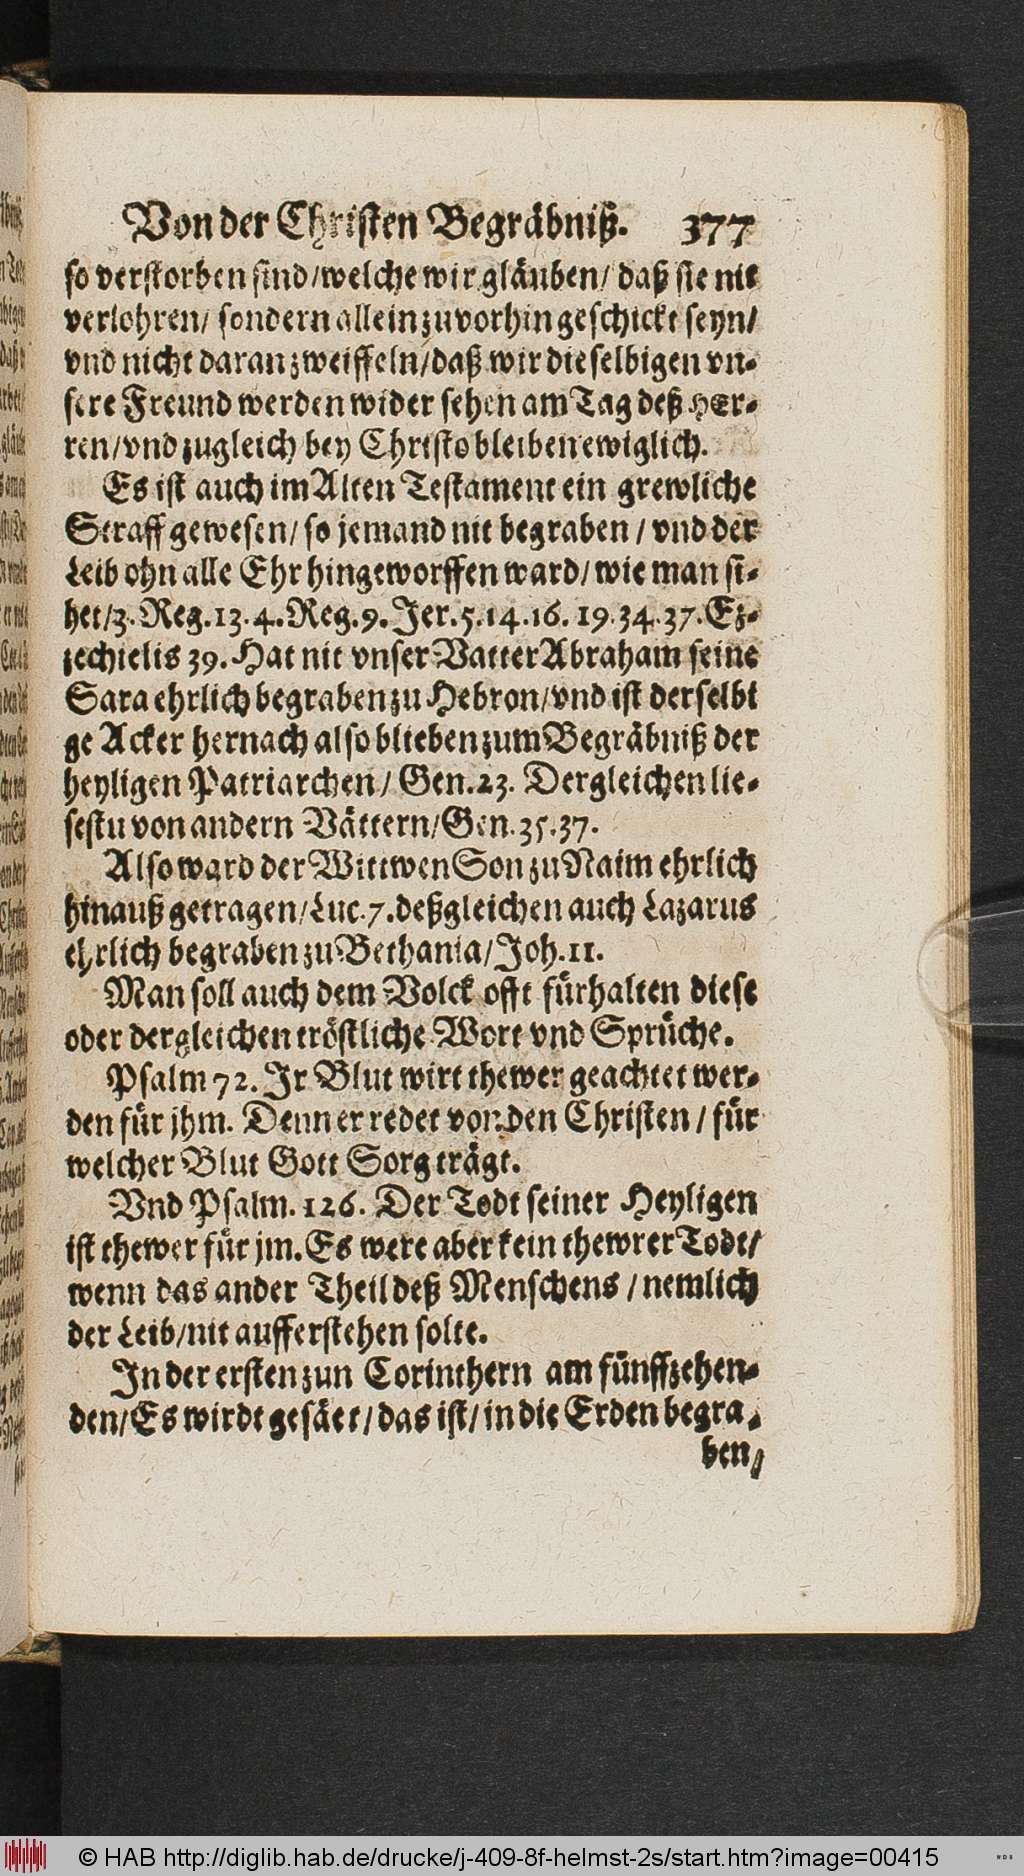 Von der Christen Begräbniß. 377
so verstorben sind/welche wir gläuben/ daß sie nit
verlohren/ sondern allein zuvorhin geschickt seyn/
vnd nicht daran zweiffeln/daß wir dieselbigen vn-
sere Freund werden wider sehen am Tag deß HEr-
ren/vnd zugleich bey Christo bleiben ewiglich.
Es ist auch im Alten Testament ein grewliche
Straff gewesen/ so jemand nit begraben / vnd der
Leib ohn alle Ehr hingeworffen ward/ wie man si-
het/3. Reg. 13. 4. Reg. 9. Jer. 5. 14. 16. 19. 34. 37. Ez-
zechielis 39. Hat nit vnser Vatter Abraham seine
Sara ehrlich begraben zu Hebron/vnd ist derselbi
ge Acker hernach also blieben zum Begräbniß der
heyligen Patriarchen/ Gen. 23. Dergleichen lie-
sestu von andern Vättern/Gen. 35. 37.
Also ward der Wittwen Son zu Naim ehrlich
hinauß getragen/Luc. 7. deßgleichen auch Lazarus
ehrlich begraben zu Bethania/Joh. 11.
Man soll auch dem Volck offt fürhalten diese
oder dergleichen tröstliche Wort vnd Sprüche.
Psalm 72. Jr Blut wirt thewer geachtet wer-
den für jhm. Denn er redet von den Christen / für
welcher Blut Gott Sorg trägt.
Vnd Psalm. 126. Der Todt seiner Heyligen
ist thewer für jm. Es were aber kein thewrer Todt/
wenn das ander Theil deß Menschens / nemlich
der Leib/nit aufferstehen solte.
In der ersten zun Corinthern am fünffzehen-
den/Es wirdt gesäet/das ist/in die Erden begra-
ben/
© HAB http://diglib.hab.de/drucke/j-409-8f-helmst-2s/start.htm?image=00415